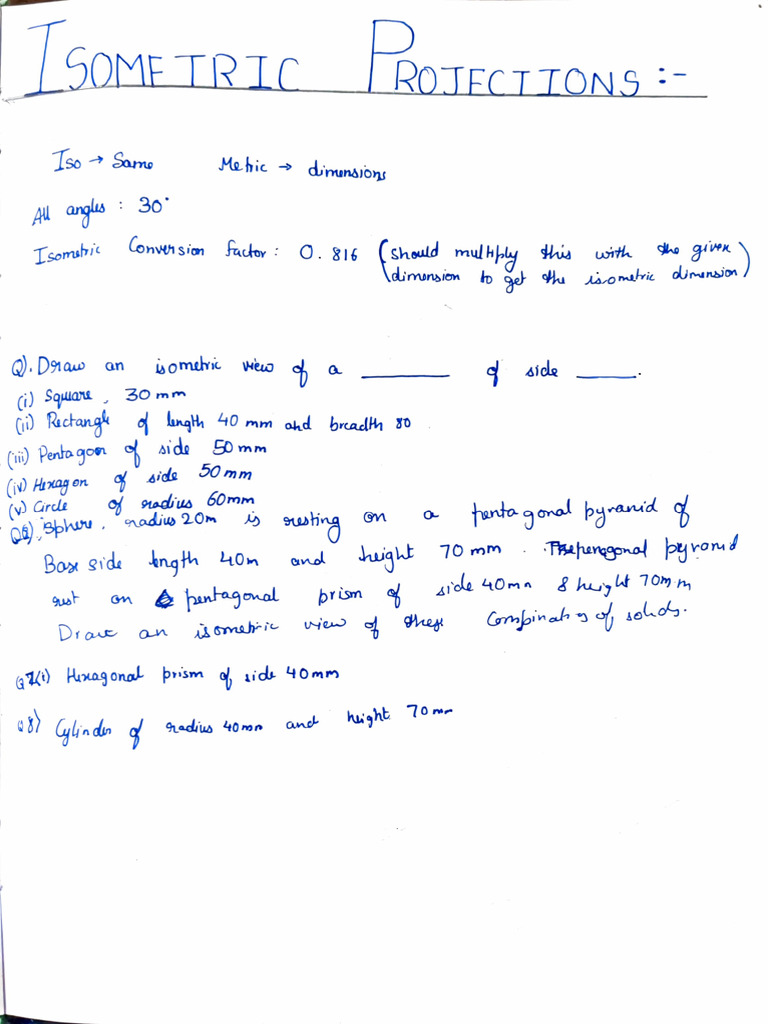 ISOMETRIC PROJECTIONS :-
Iso → Same Metric → dimensions
All angles : 30°
Isometric Conversion factor : 0.816 (should multiply this with the given
dimension to get the isometric dimension)
Q). Draw an isometric view of a ________ of side _____.
(i) Square, 30 mm
(ii) Rectangle of length 40 mm and breadth 80
(iii) Pentagon of side 50 mm
(iv) Hexagon of side 50 mm
(v) Circle of radius 60mm
Q6). Sphere, radius 20m is resting on a pentagonal pyramid of
Base side length 40m and height 70 mm. The pengonal pyramid
rest on pentagonal prism of side 40mm & height 70mm
Draw an isometric view of these Combination of solids.
Q7(i) Hexagonal prism of side 40mm
Q8) Cylinder of radius 40mm and height 70mm